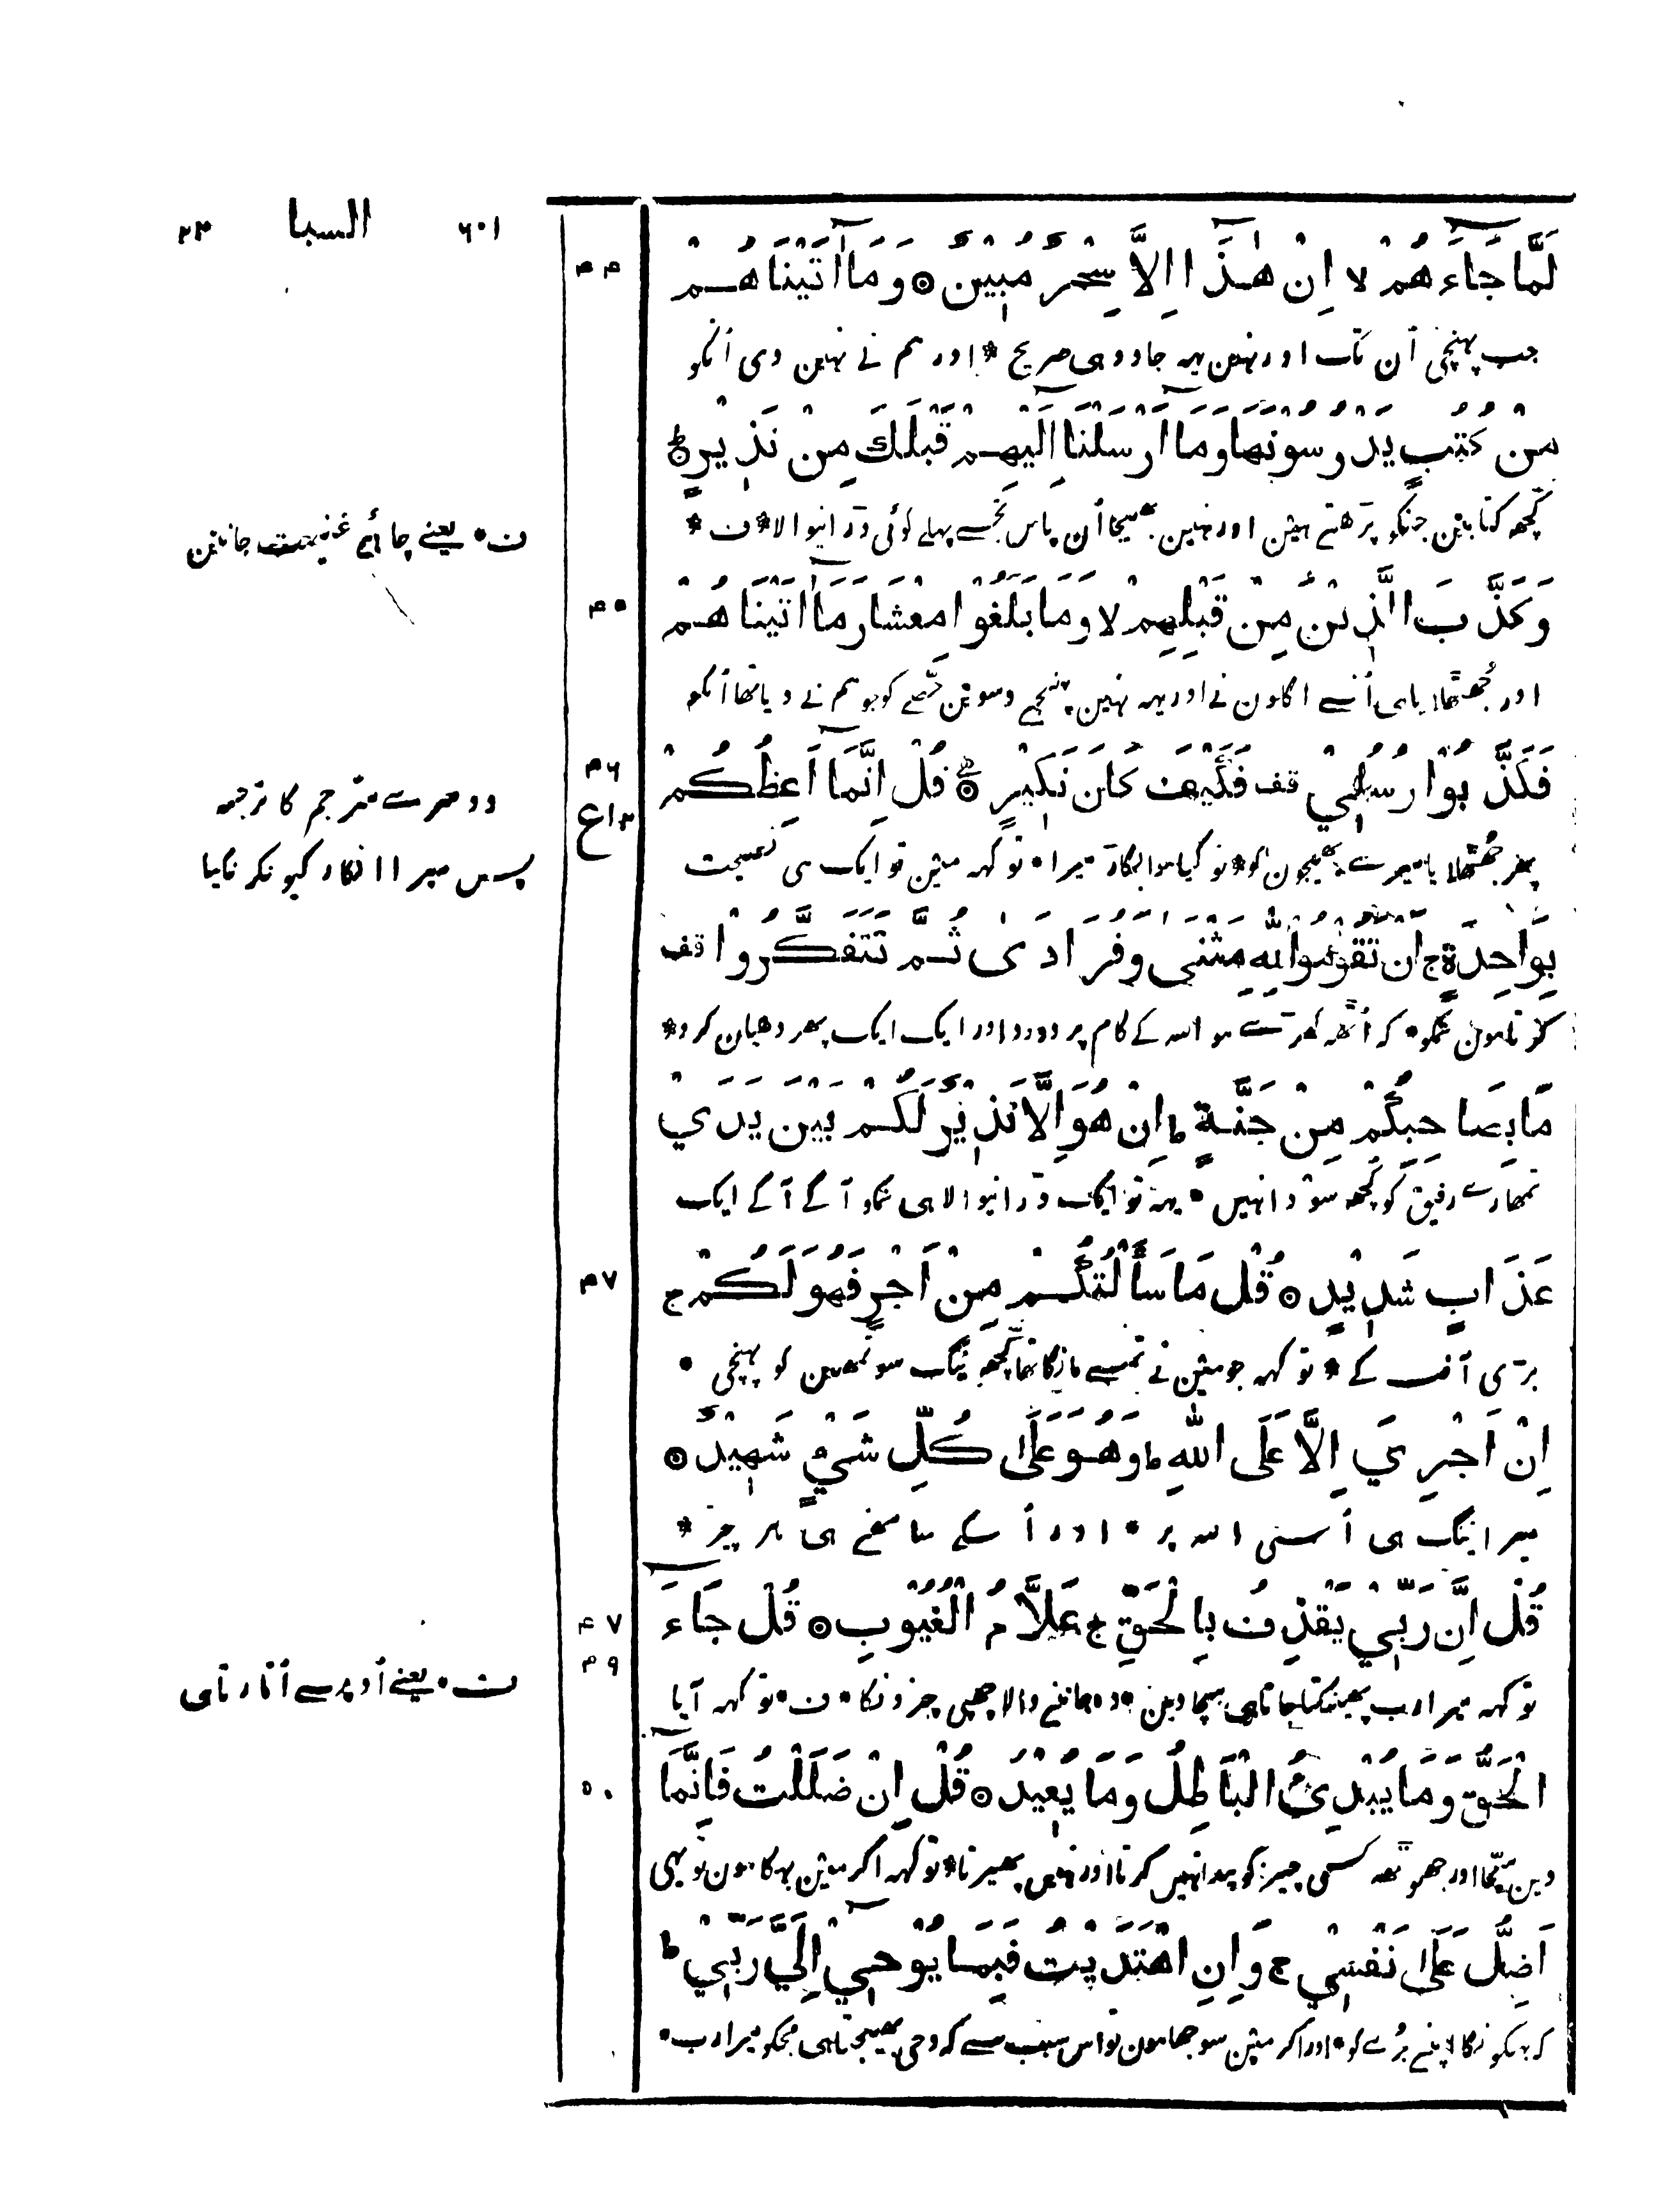 ٦٠١ السبا ٢٢
لَمَّا جَاءَهُمْ لا اِنْ هٰذَا اِلَّا سِحْرٌ مُبِيْنٌ ۞ وَمَا اٰتَيْنَاهُمْ
٤٤
جب پہنچی اُن تک اور نہین یہہ جادو ہی صریح * اور ہم نے نہین دی اُنکو
مِنْ كُتُبٍ يَدْرُسُوْنَهَا وَمَا اَرْسَلْنَا اِلَيْهِمْ قَبْلَكَ مِنْ نَذِيْرٍ ۞ ط
کُچھ کتابین جنکو پڑھتے ہین اور نہین بھیجا اُن پاس تجسے پہلے کوئی ڈرانیوالا * ف *
ف • یعنے چاہئے غنیمت جانین
وَكَذَّبَ الَّذِيْنَ مِنْ قَبْلِهِمْ لا وَمَا بَلَغُوْا مِعْشَارَ مَا اٰتَيْنَاهُمْ
٤٥
اور جُھٹلایا ہی اُنسے اگلون نے اور یہہ نہین پہنچے دسوین حصّے کو جو ہم نے دیا تھا اُنکو
فَكَذَّبُوْا رُسُلِيْ قف فَكَيْفَ كَانَ نَكِيْرٍ ۞ قُلْ اِنَّمَا اَعِظُكُمْ
٤٦
ع ١٢
دوسرے مترجم کا ترجمہ
پھر جُھٹلایا میرے بھیجون کو * تو کیا ہوا بگاڑ میرا • تو کہہ مین تو ایک ہی نصیحت
پس میرا انکار کیونکر نکیا
بِوَاحِدَةٍ ج اَنْ تَقُوْمُوْا لِلّٰهِ مَثْنٰى وَفُرَادٰى ثُمَّ تَتَفَكَّرُوْا قف
کرتا ہون تمکو • کہ اُٹھہ کھڑے ہو اللہ کے کام پر دو دو اور ایک ایک پھر دھیان کرو *
مَا بِصَاحِبِكُمْ مِنْ جَنَّةٍ ط اِنْ هُوَ اِلَّا نَذِيْرٌ لَكُمْ بَيْنَ يَدَيْ
تمھارے رفیق کو کُچھ سودا نہیں • یہہ تو ایک ڈرانیوالا ہی تمکو آگے آگے ایک
عَذَابٍ شَدِيْدٍ ۞ قُلْ مَا سَأَلْتُكُمْ مِنْ اَجْرٍ فَهُوَ لَكُمْ ج
٤٧
بڑی آفت کے * تو کہہ جو مین نے تمسے مانگا تھا کُچھ نیگ سو تمھین کو پہنچی •
اِنْ اَجْرِيَ اِلَّا عَلَى اللّٰهِ ط وَهُوَ عَلٰى كُلِّ شَيْءٍ شَهِيْدٌ ۞
میرا نیگ ہی اُسی اللہ پر • اور اُسکے سامھنے ہی ہر چیز *
قُلْ اِنَّ رَبِّيْ يَقْذِفُ بِالْحَقِّ ج عَلَّامُ الْغُيُوْبِ ۞ قُلْ جَاءَ
٤٧
٤٩
تو کہہ میرا رب پھینکتا جاتا ہی سچا دین • وہ جاننے والا چھپی چیزونکا • ف • تو کہہ آیا
ف • یعنے اُوپر سے اُتارتا ہی
الْحَقُّ وَمَا يُبْدِئُ الْبَاطِلُ وَمَا يُعِيْدُ ۞ قُلْ اِنْ ضَلَلْتُ فَاِنَّمَا
٥٠
دین سچّا اور جھوٹھہ کسی چیز کو پیدا نہیں کرتا اور نہیں پھیرتا * تو کہہ اگر مین بہکا ہون تو یہی
اَضِلُّ عَلٰى نَفْسِيْ ج وَاِنِ اهْتَدَيْتُ فَبِمَا يُوْحِيْ اِلَيَّ رَبِّيْ ط
کہ بہکونگا اپنے بُرے کو • اور اگر مین سوجھا ہون تو اس سبب سے کہ وحی بھیجتا ہی مجکو میرا رب •